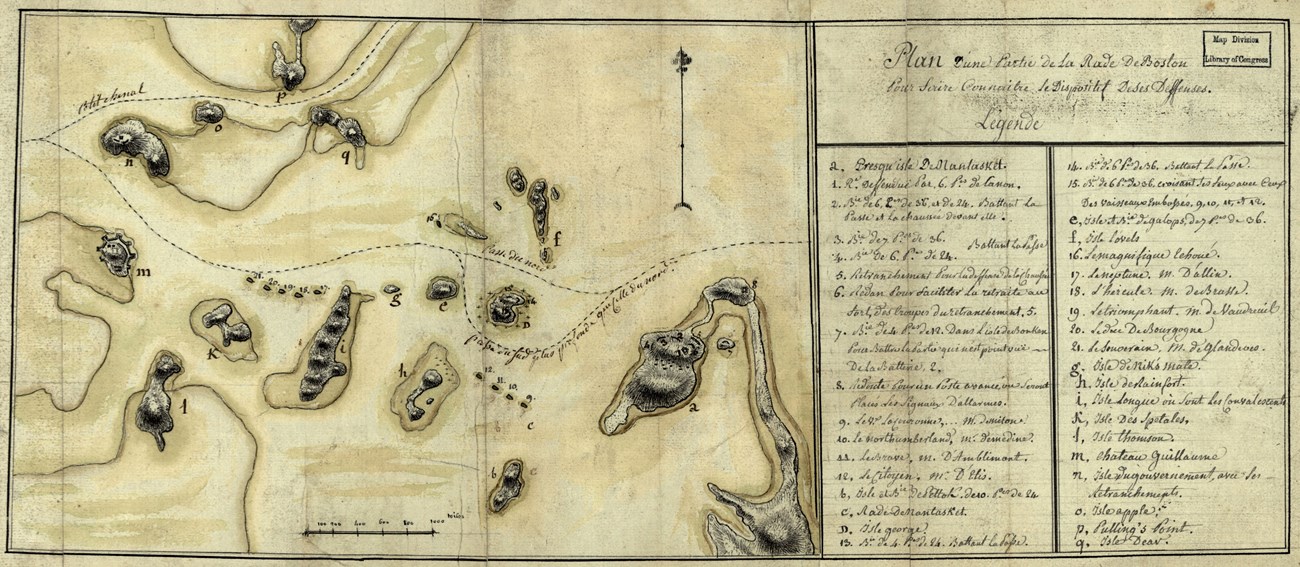 Plan D'une Partie de La Rade De Boston
Pour Faire Connaitre Le Dispositif De Ses Deffenses.
Légende
Map Division
Library of Congress
a. Presqu'isle De Nantasket.
1. Rte Deffendue Par 6. Pces de Canon.
2. Bie de 6, Pces de 36, et de 24. Battant La
Passe et La chaussée devant elle.
3. Bie de 7 Pces de 36.
4. Bie De 6. Pces de 24.
Battant La Passe
5. Retranchement Pour La deffense de la chaussée
6. Redan Pour faciliter La retraite au
fort, des troupes du retranchement, 5.
7. Bie de 4 Pces de 12. Dans L'isle de
Pour Battre La Partie qui n'est point vue
De La Batterie, 2.
8. Redoute Pour un Poste avancé, ou seront
Placés Les Signaux D'allarmes.
9. Le Vau
10. Le northumberland, Mr. De medine.
11. Le Brave, M. D'Amblimont.
12. Le Citoyen, Mr. D'Elis.
b, Isle et Bie de Pettok, de 10. Pces de 24
c. Rade De Nantasket.
D. Isle george
13. Bie de 4 Pces de 24. Battant La Passe.
14. Bie de 6 Pces de 36. Battant La Passe.
15. Bie de 6 Pces de 36. croisant ses feux avec Ceux
Des vaisseaux Embossés, 9, 10, 11, et 12.
e, Isle et Bie de galops, de 7 Pces de 36.
f, Isle Lovels
16. Le magnifique Echoué.
17. Le neptune, M. D'allin.
18. L'hercule, M. de
19. Le triomphant, M. de Vaudreuil
20. Le Duc De Bourgogne
21. Le Souverain, M. de Glandeves.
g. Isle de Niks mate.
h. Isle de rainfort.
i, Isle Longue où sont Les Convalescents
K, Isle Des Spetales,
l, Isle thomson.
m, Chateau Guillaume
n, Isle du gouvernement, avec ses
Retranchements.
o. Isle apple.
p, Pulling's Point.
q. Isle Dear.
Ptit chenal
p
o
n
q
f
15
m
Passe du nord
21 20 19 18 17
g
e
D
Passe du sud plus profonde que celle du nord.
K
i
h
12
11
10
9
8
7
l
a
c
b
100 200 400 600 800 1000 toises